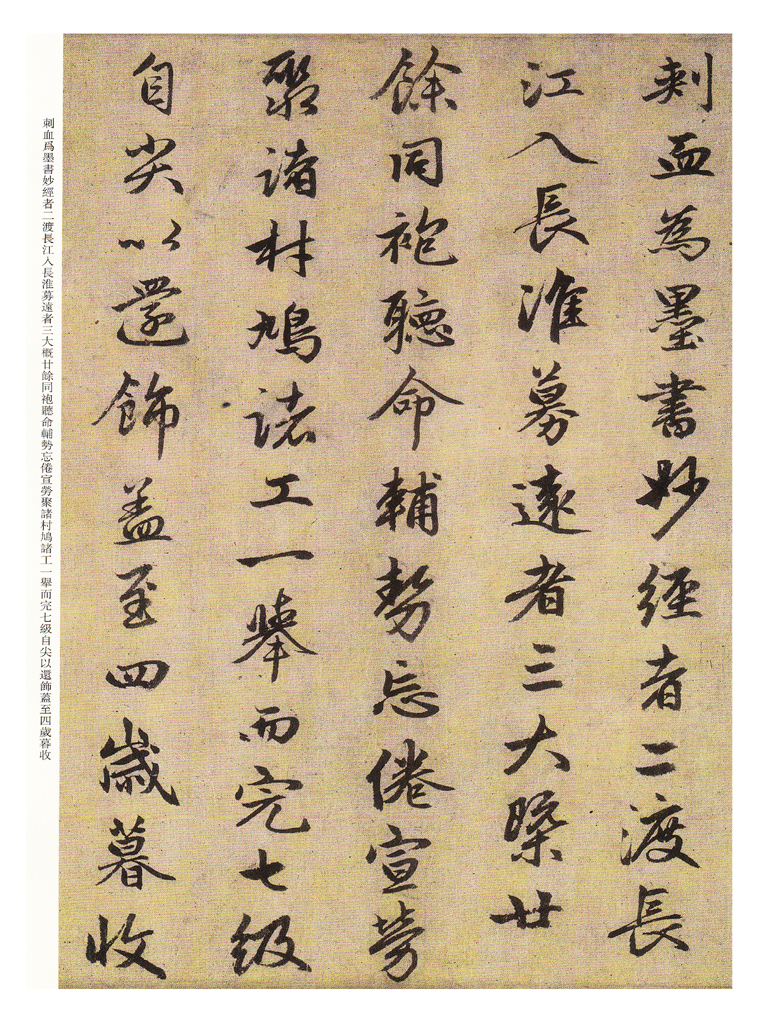 刺血為墨書妙經者二渡長
江入長淮募遠者三大槩廿
餘同袍聽命輔勢忘倦宣勞
聚諸材鳩諸工一舉而完七級
自尖以還飾盖至四歲暮收
刺血爲墨書妙經者二渡長江入長淮募遠者三大概廿餘同袍聽命輔勢忘倦宣勞聚諸村鳩諸工一舉而完七級自尖以還飾蓋至四歲暮收